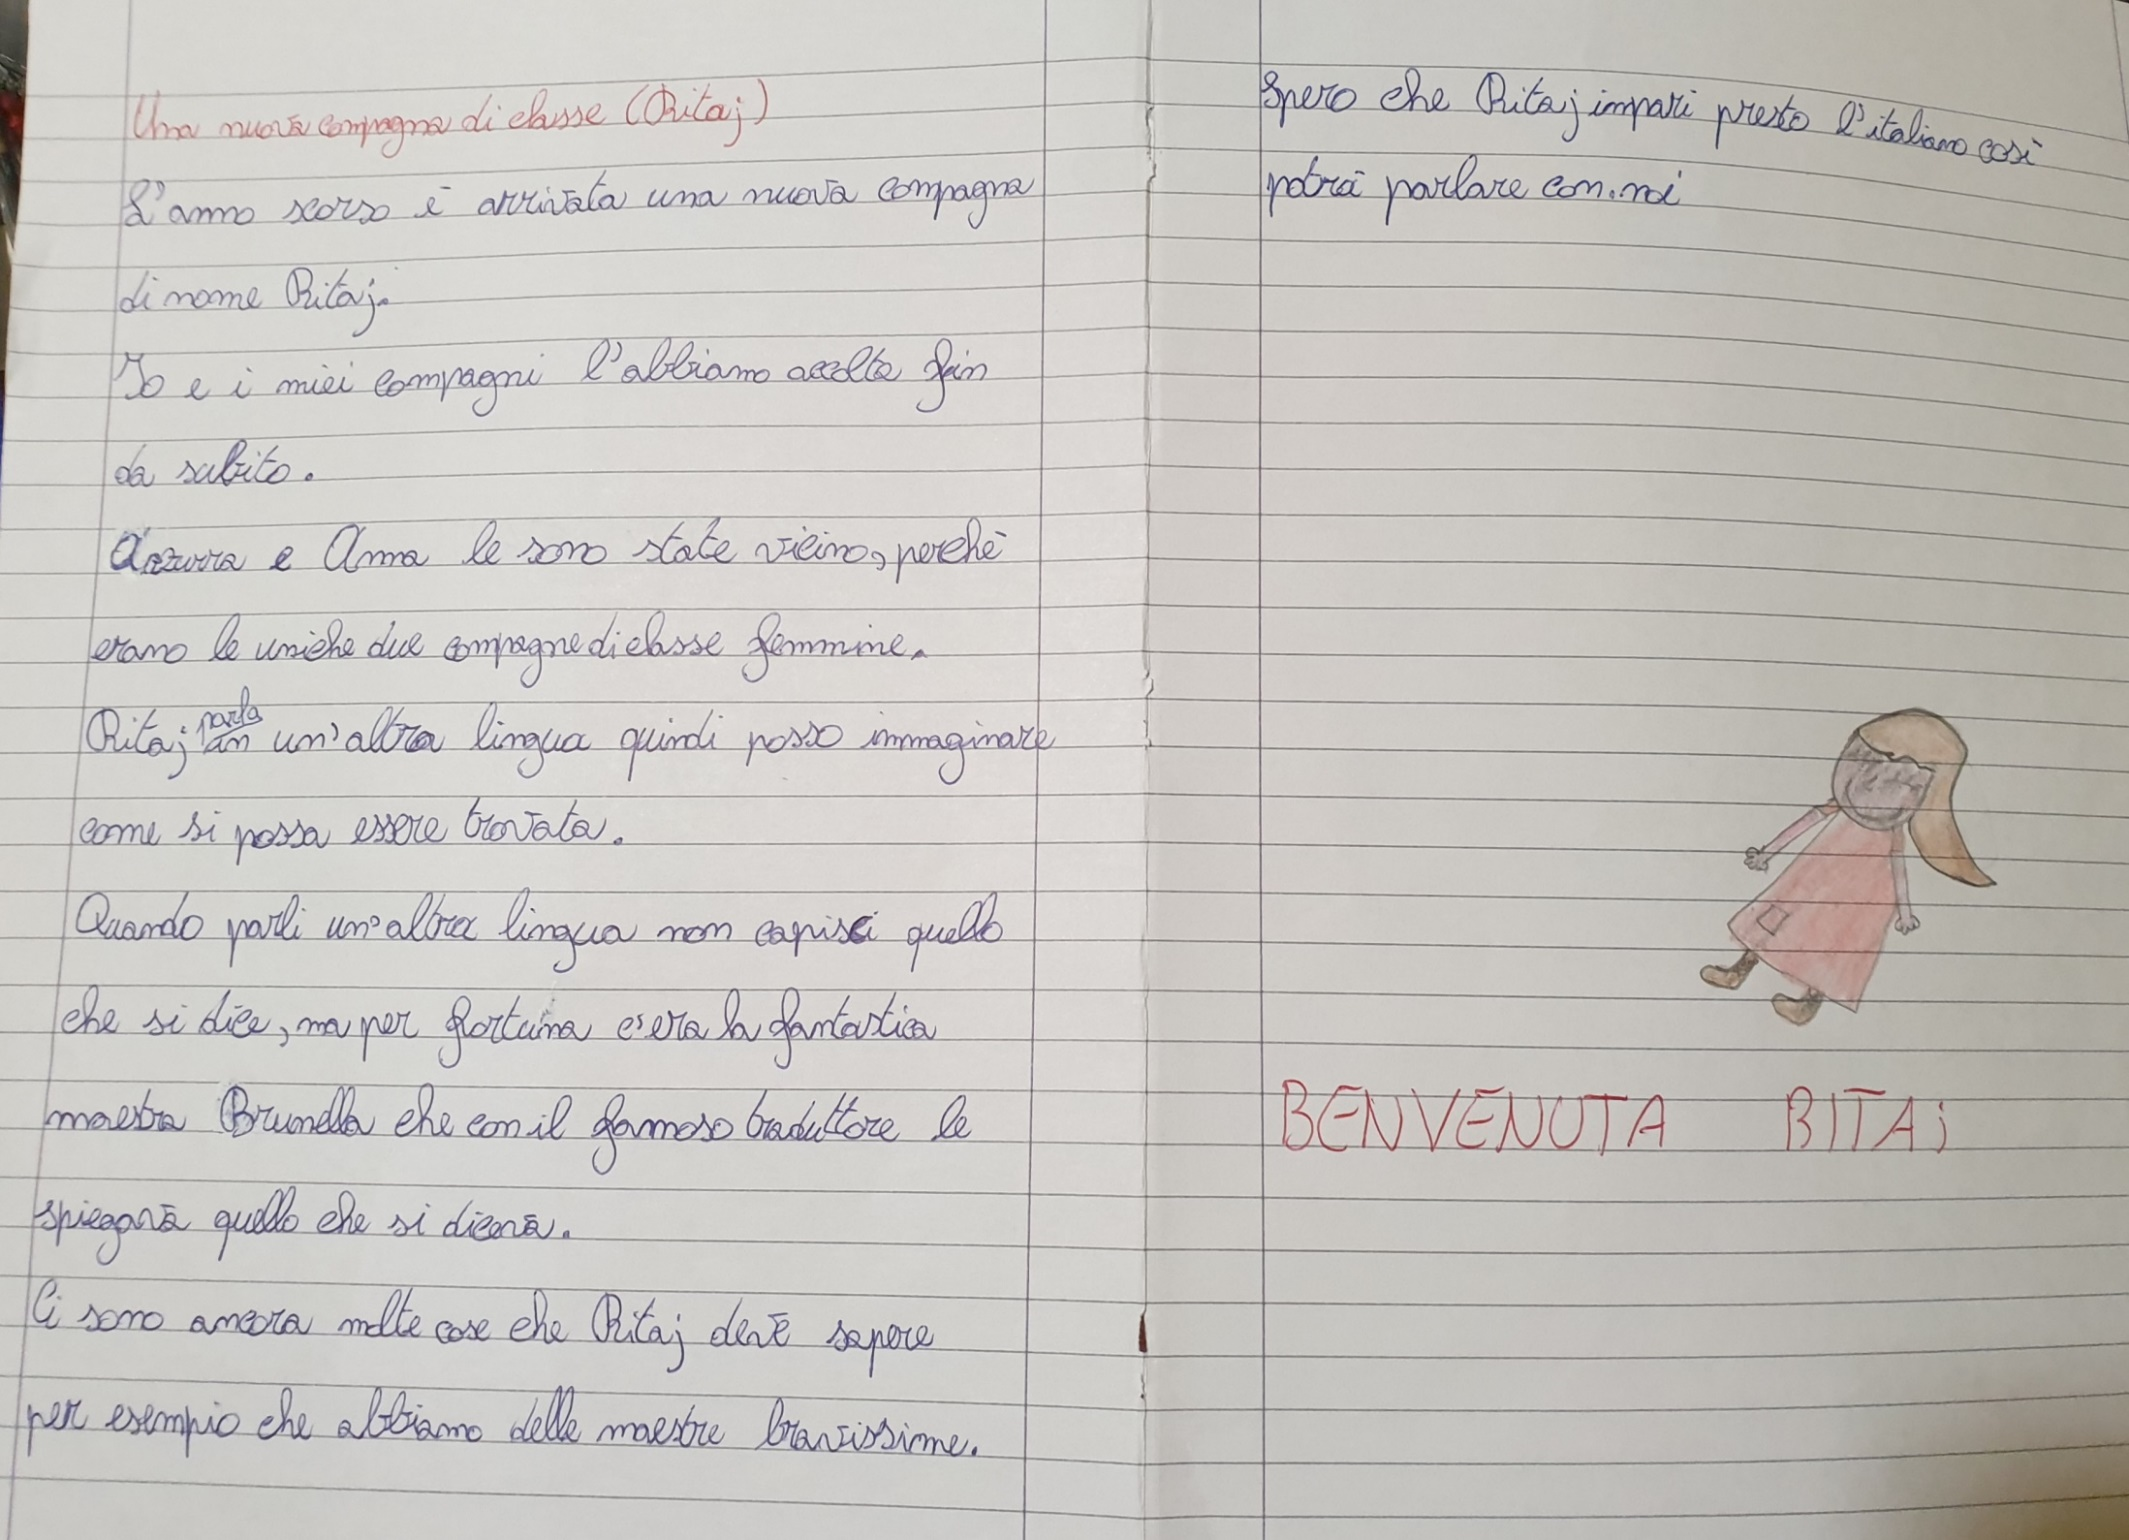 Una nuova compagna di classe (Ritaj)
L'anno scorso è arrivata una nuova compagna
di nome Ritaj.
Io e i miei compagni l'abbiamo accolta fin
da subito.
Azzurra e Anna le sono state vicino, perchè
erano le uniche due compagne di classe femmine.
Ritaj parla un'altra lingua quindi posso immaginare
come si possa essere trovata.
Quando parli un'altra lingua non capisci quello
che si dice, ma per fortuna c'era la fantastica
maestra Brunella che con il famoso traduttore le
spiegavà quello che si dicevà.
Ci sono ancora molte cose che Ritaj deve sapere
per esempio che abbiamo delle maestre bravissime.
Spero che Ritaj impari presto l'italiano così
potrà parlare con noi
BENVENUTA RITAj